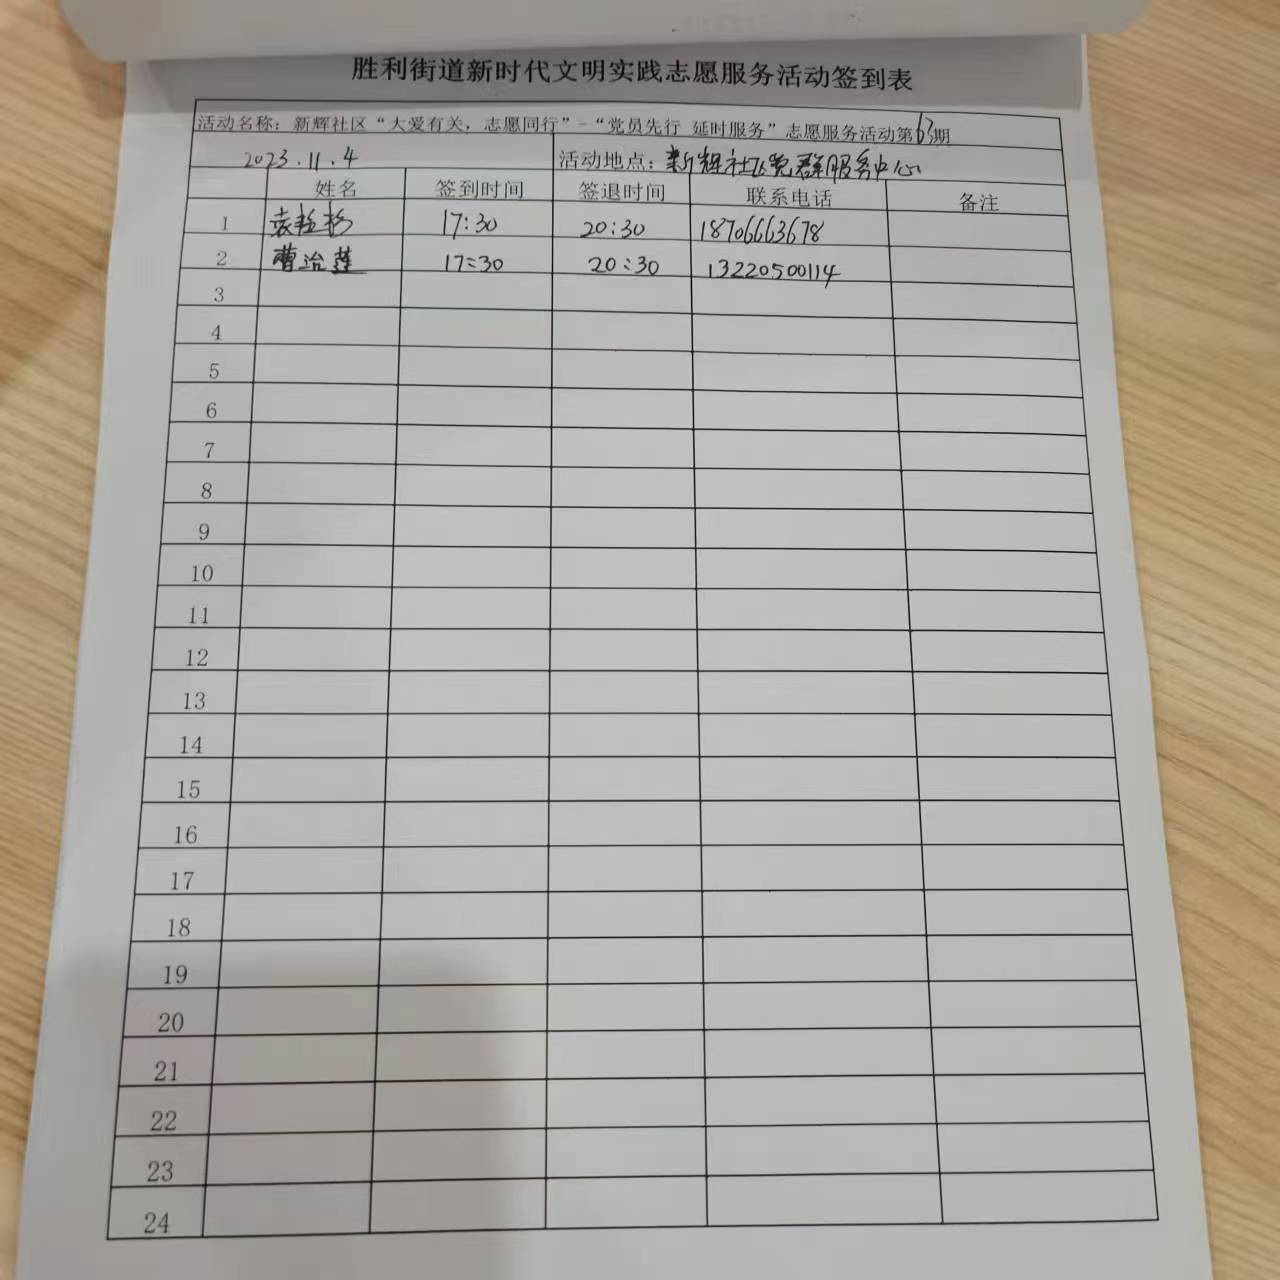 胜利街道新时代文明实践志愿服务活动签到表
活动名称：新辉社区“大爱有关，志愿同行”-“党员先行 延时服务”志愿服务活动第63期
2023.11.4 活动地点：新辉社区党群服务中心
姓名 签到时间 签退时间 联系电话 备注
1 17:30 20:30 18706663678
2 曹治莲 17:30 20:30 13220500114
3
4
5
6
7
8
9
10
11
12
13
14
15
16
17
18
19
20
21
22
23
24